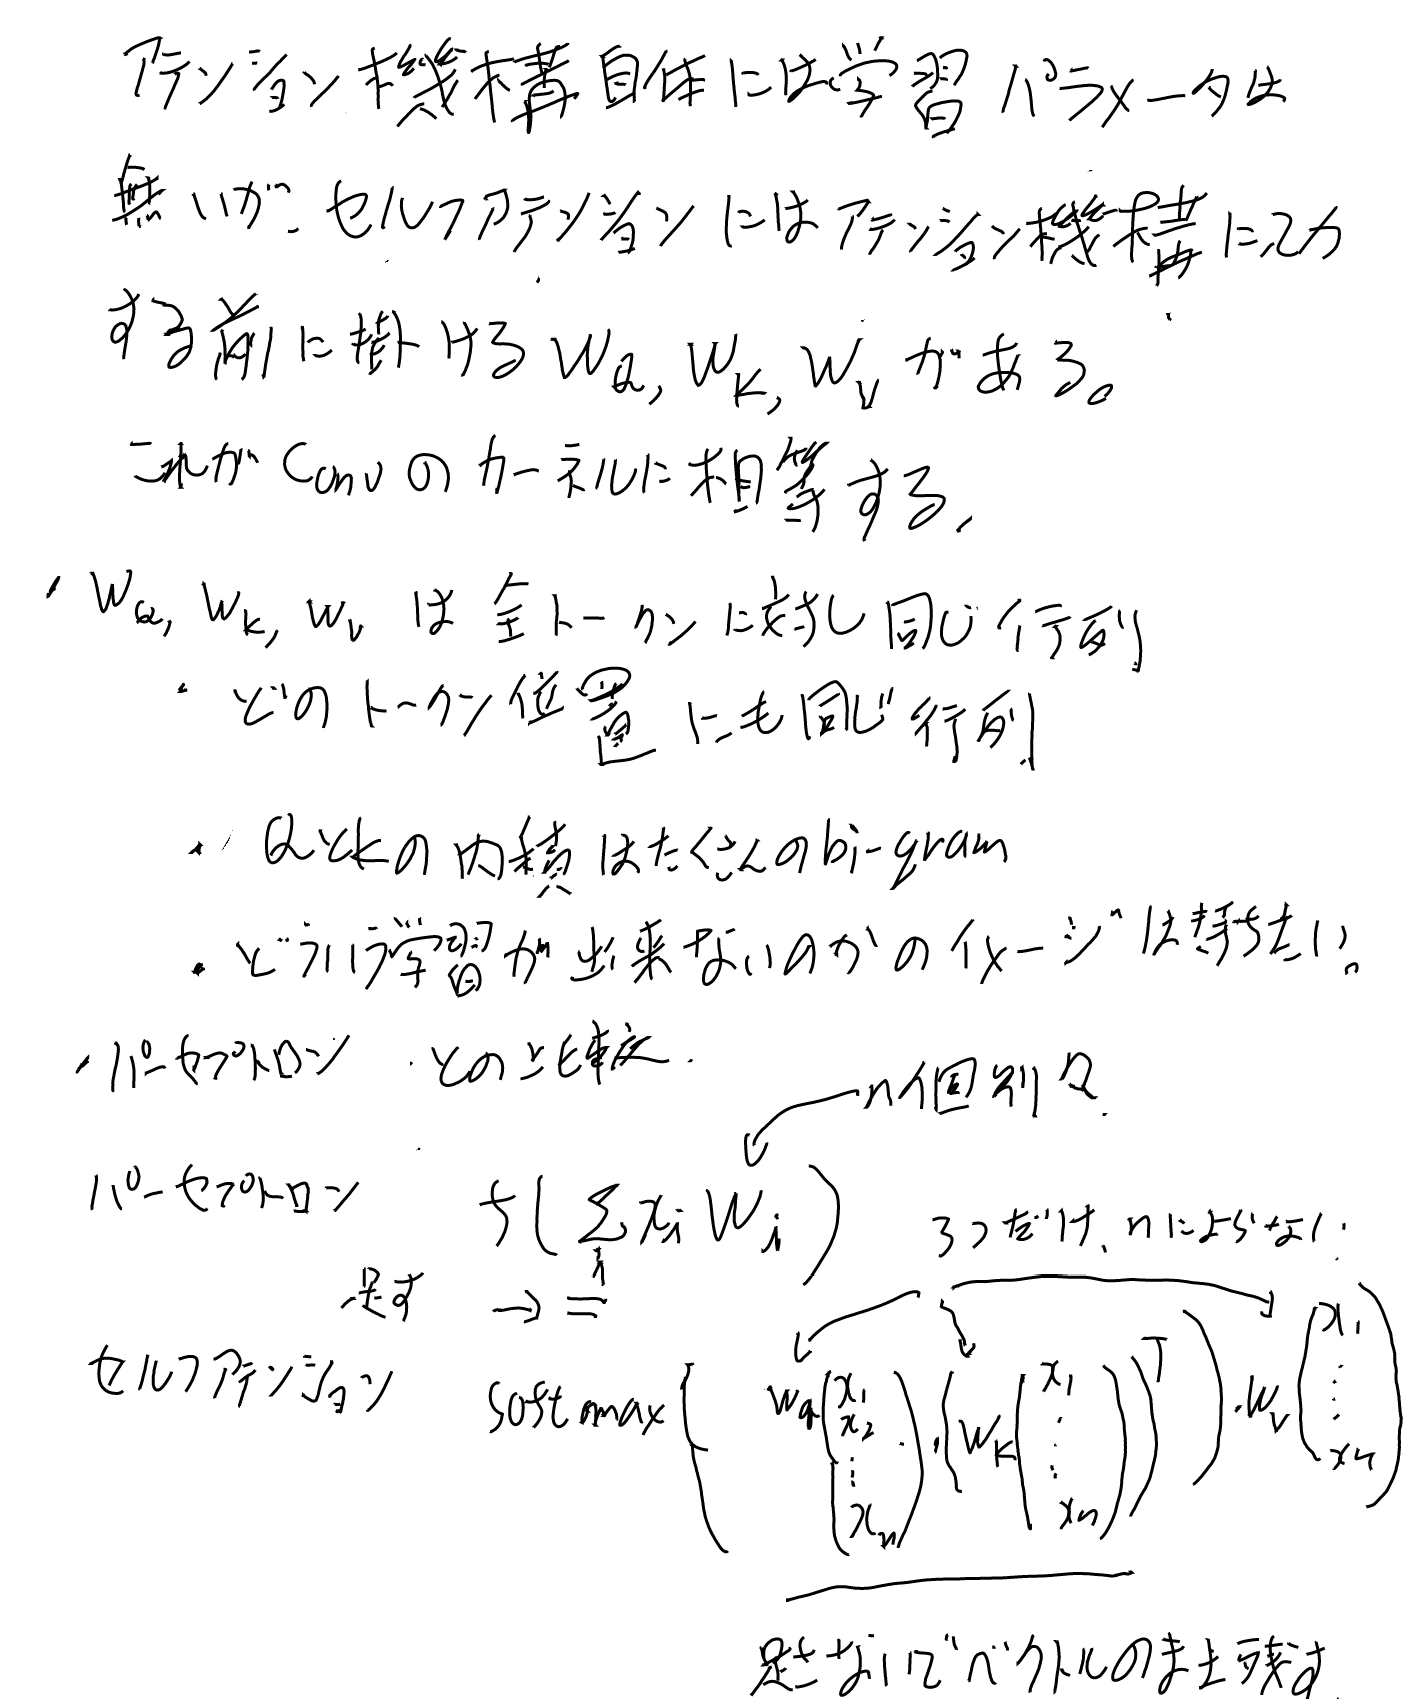 アテンション機構自体には学習パラメータは
無いが、セルフアテンションにはアテンション機構に入力
する前に掛ける W_Q, W_K, W_V がある。
これがConvのカーネルに相等する、
・W_Q, W_K, W_V は全トークンに対し同じ行列
・どのトークン位置にも同じ行列
・QとKの内積はたくさんのbi-gram
・どういう学習が出来ないのかのイメージは持ちたい。
・パーセプトロンとの比較.
n個別々
パーセプトロン f(Σ_i x_i W_i)
3つだけ、nによらない.
足す → =
セルフアテンション softmax( W_q (x_1 x_2 ⋮ x_n) · (W_K (x_1 ⋮ x_n))^T ) · W_V (x_1 ⋮ x_n)
足さないでベクトルのまま残す